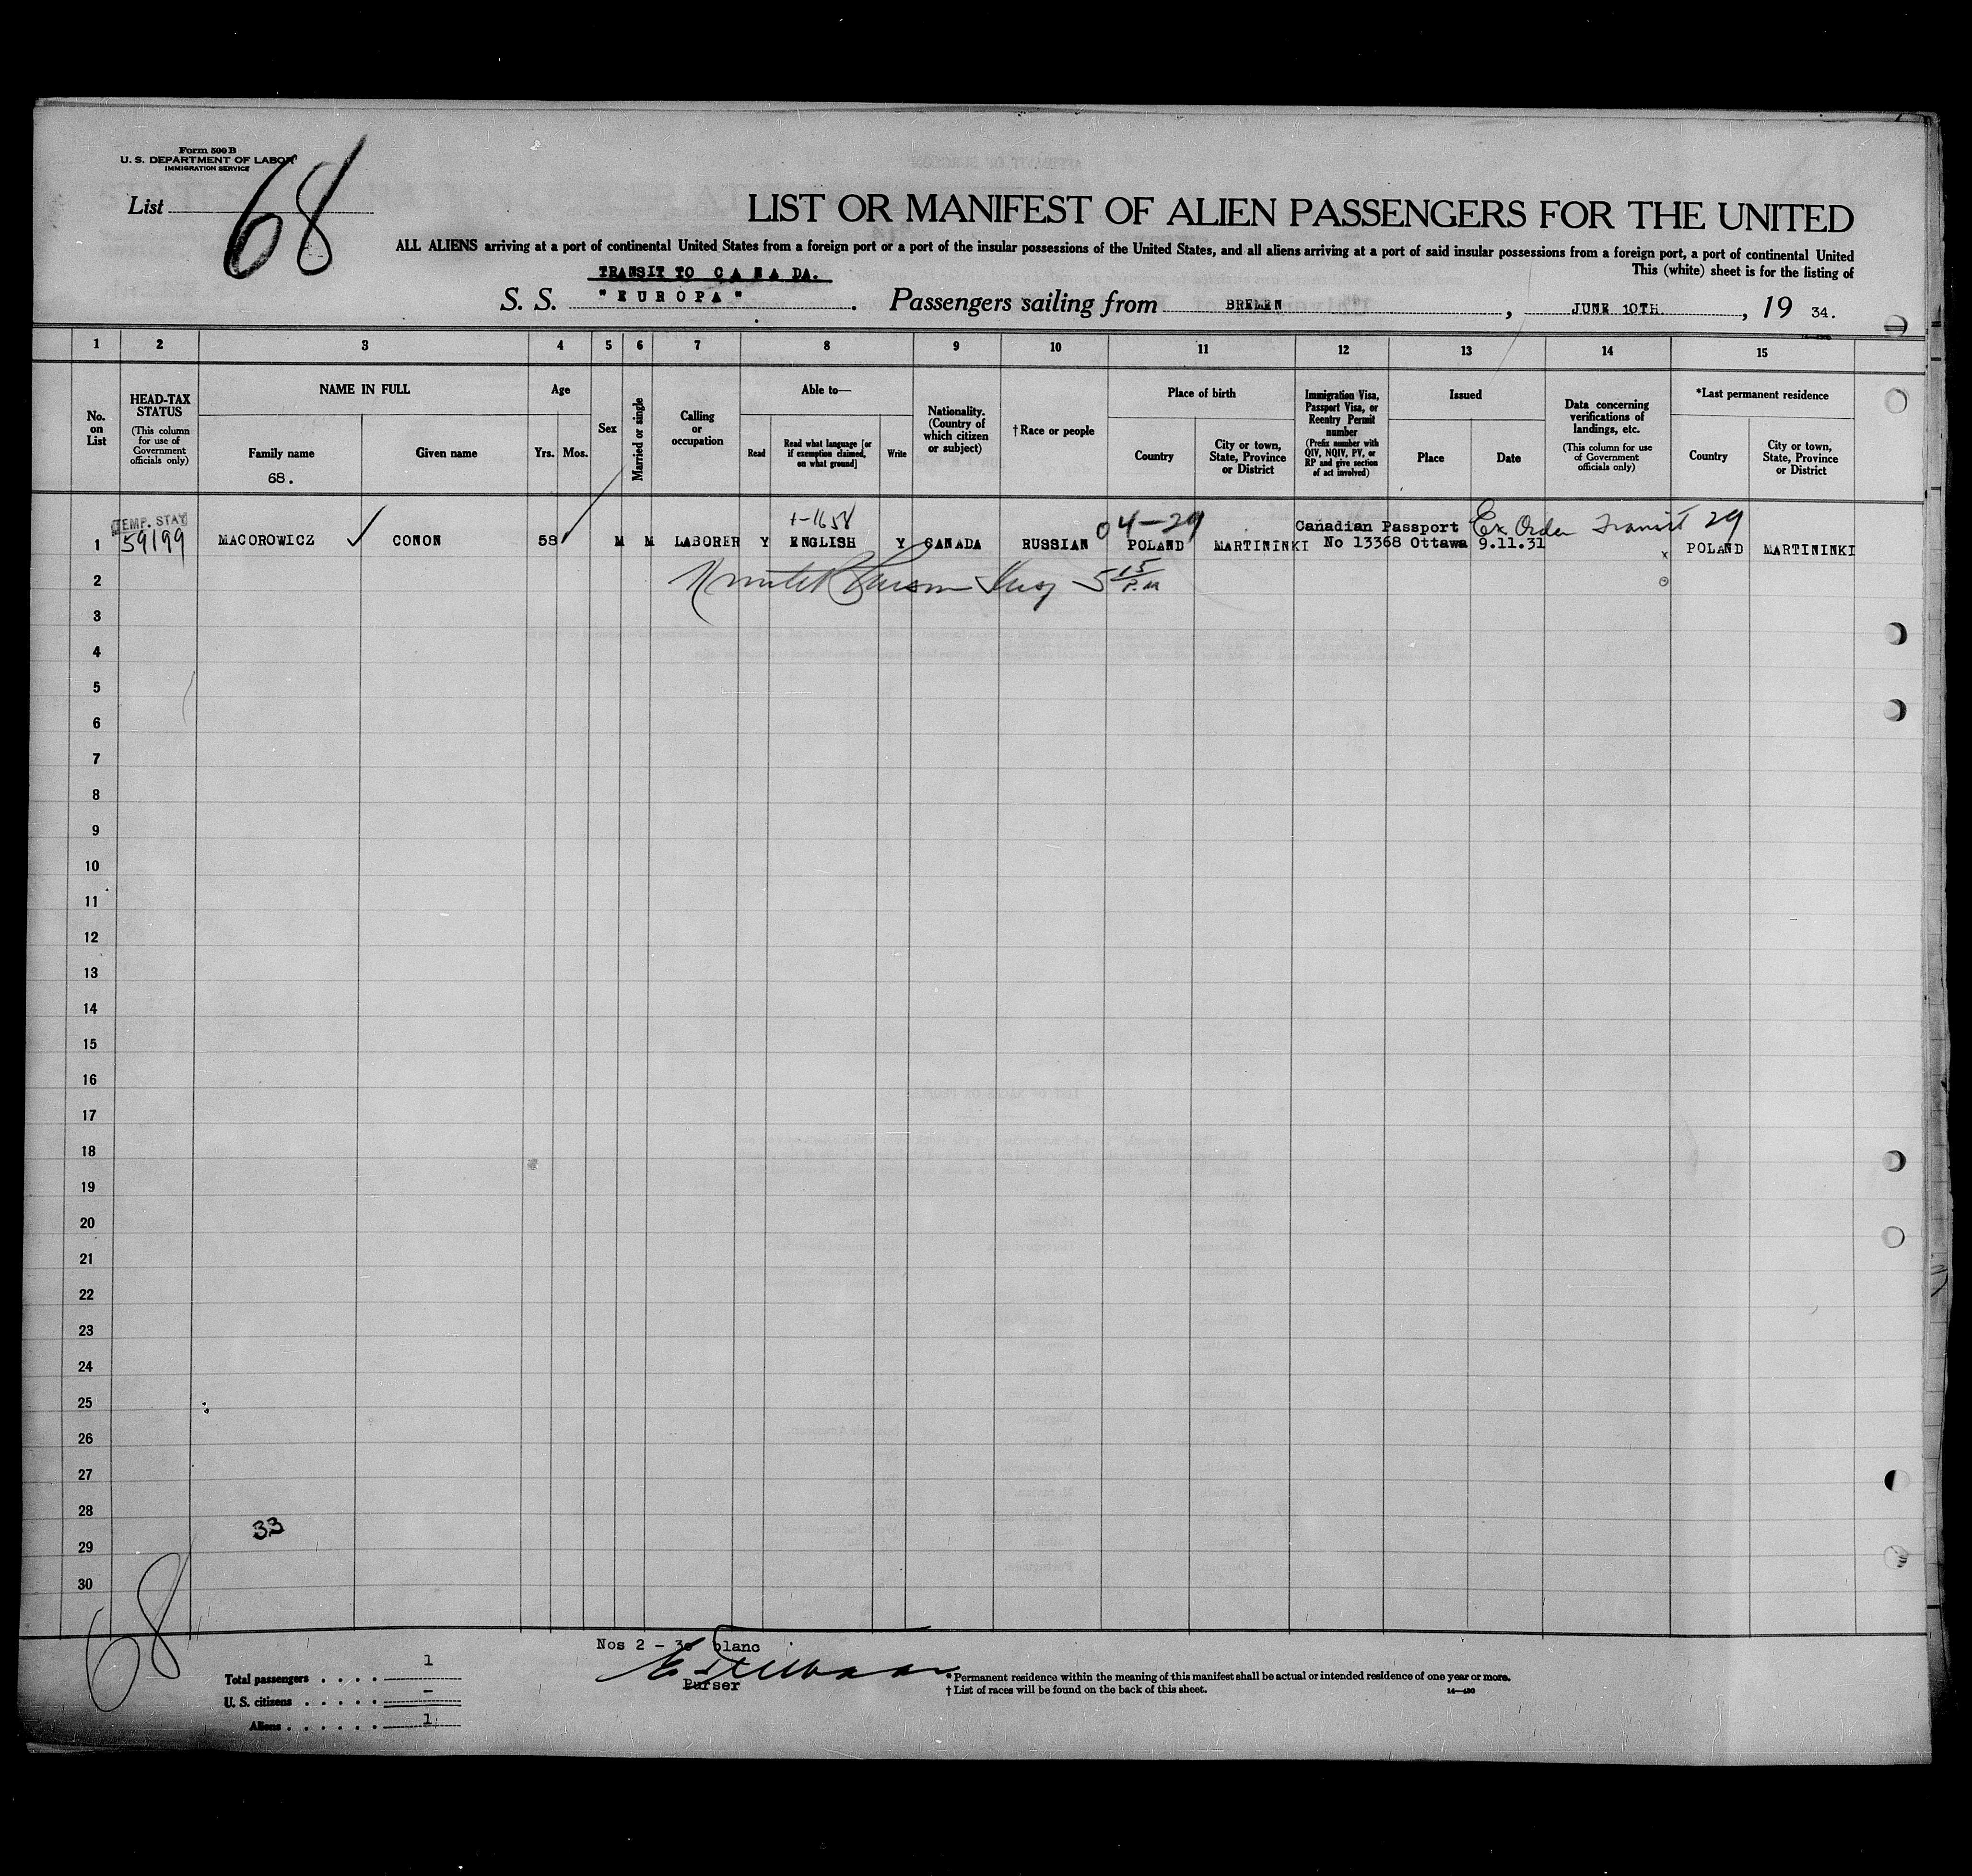 Form 500 B
U. S. DEPARTMENT OF LABOR
IMMIGRATION SERVICE
List 68
LIST OR MANIFEST OF ALIEN PASSENGERS FOR THE UNITED
ALL ALIENS arriving at a port of continental United States from a foreign port or a port of the insular possessions of the United States, and all aliens arriving at a port of said insular possessions from a foreign port, a port of continental United
This (white) sheet is for the listing of
TRANSIT TO C A N A DA.
S. S. "E U R O P A". Passengers sailing from BREMEN, JUNE 10TH., 19 34.
1 2 3 4 5 6 7 8 9 10 11 12 13 14 15
No. on List
HEAD-TAX STATUS
(This column for use of Government officials only)
NAME IN FULL
Family name
68.
Given name
Age
Yrs. Mos.
Sex
Married or single
Calling or occupation
Able to—
Read
Read what language [or if exemption claimed, on what ground]
Write
Nationality. (Country of which citizen or subject)
†Race or people
Place of birth
Country
City or town, State, Province or District
Immigration Visa, Passport Visa, or Reentry Permit number
(Prefix number with QIV, NQIV, PV, or RP and give section of act involved)
Issued
Place
Date
Data concerning verifications of landings, etc.
(This column for use of Government officials only)
*Last permanent residence
Country
City or town, State, Province or District
TEMP. STAY
+-1658
04-29
Canadian Passport Ex Order Transit 29
1 59199 MACOROWICZ ✓ CONON 58 M M LABORER Y ENGLISH Y CANADA RUSSIAN POLAND MARTININKI No 13368 Ottawa 9.11.31 x POLAND MARTININKI
2 5 15 P.M
3
4
5
6
7
8
9
10
11
12
13
14
15
16
17
18
19
20
21
22
23
24
25
26
27
28
33
29
30
68
Nos 2 - 30 blanc
Total passengers . . . . 1
U. S. citizens . . . . . –
Aliens . . . . . . 1
Purser
* Permanent residence within the meaning of this manifest shall be actual or intended residence of one year or more.
† List of races will be found on the back of this sheet.
14—430